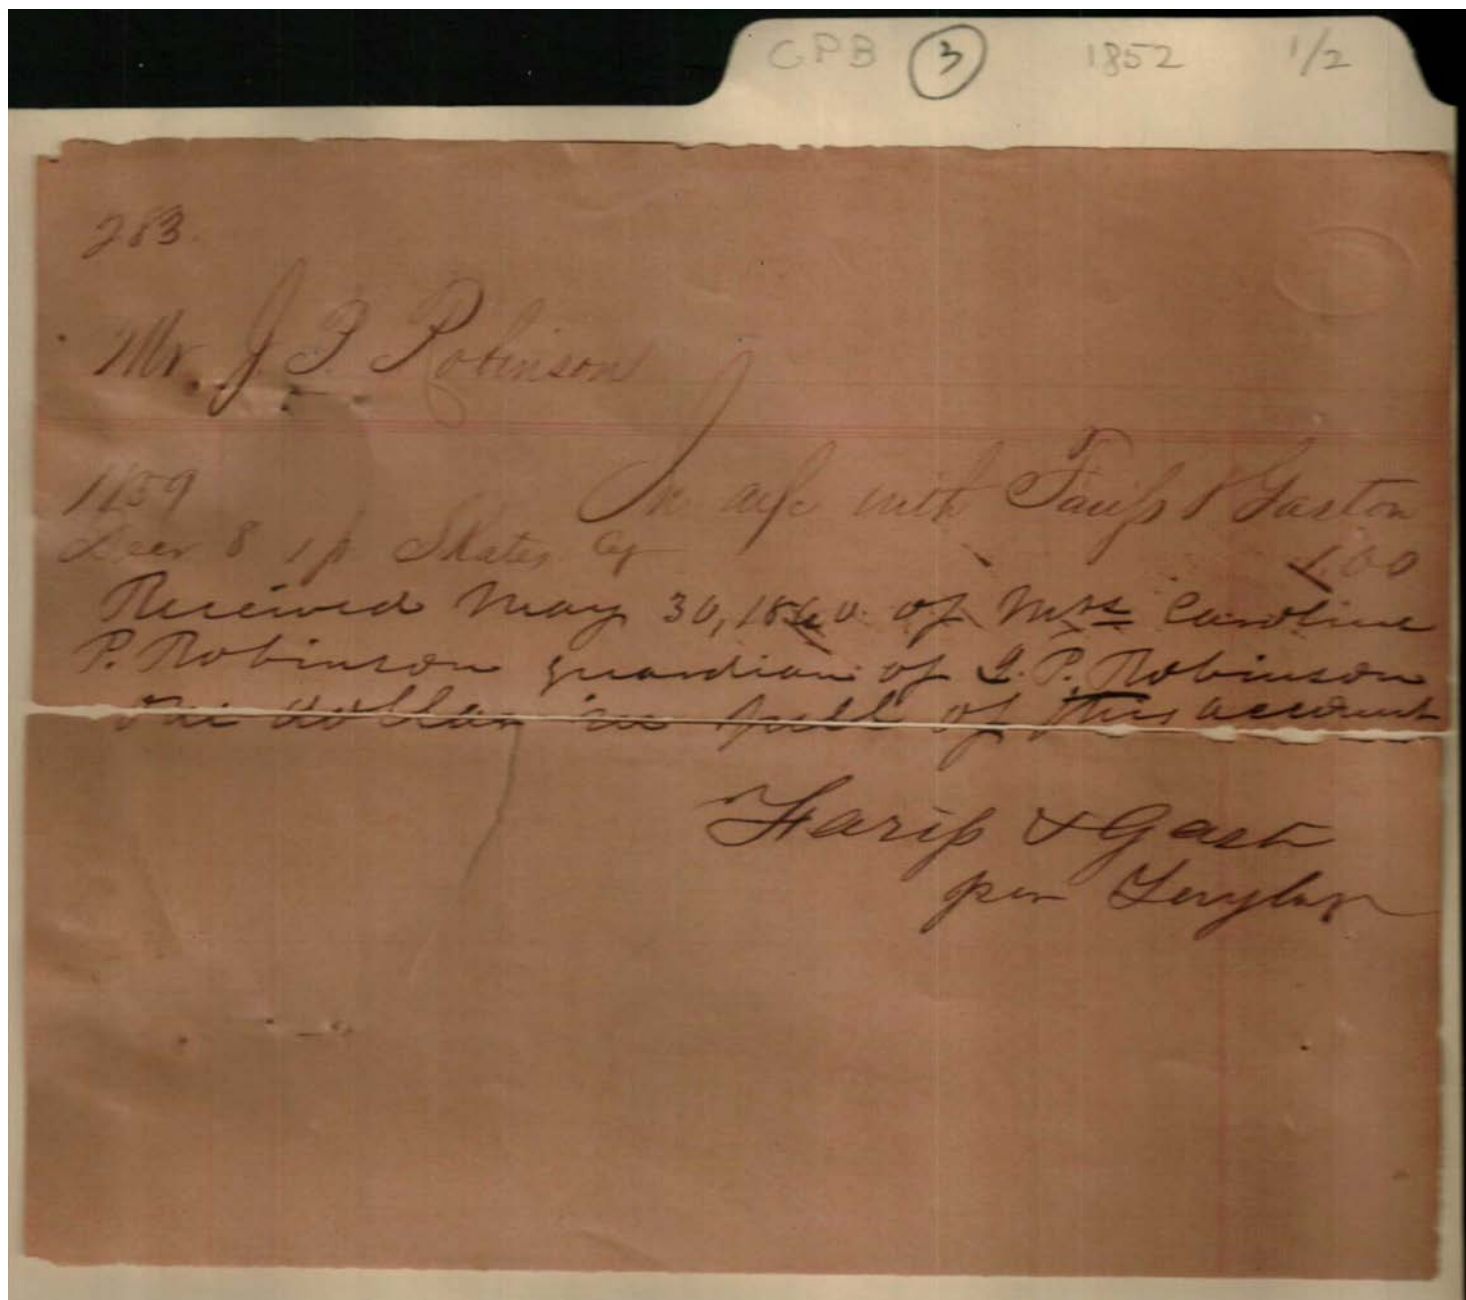 CPB 3 1852 1/2
283.
Mr. J P Robinson
In a/c with Fariss & Gaston
1859
Decr 8 1 pr Skates 1,00
Received May 30, 1860 of Mrs Caroline
P. Robinson guardian of J. P. Robinson
one dollar in full of this account
Fariss & Gast
per